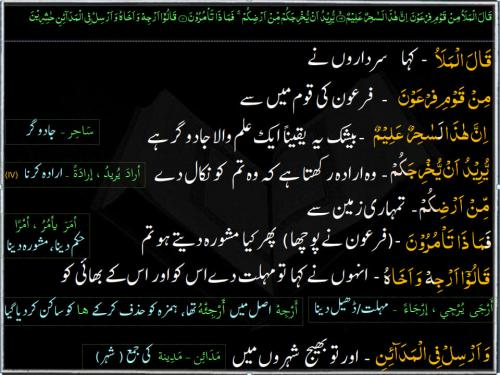 قَالَ الْمَلَاُ مِنْ قَوْمِ فِرْعَوْنَ اِنَّ هٰذَا لَسٰحِرٌ عَلِیْمٌ یُّرِیْدُ اَنْ یُّخْرِجَكُمْ مِّنْ اَرْضِكُمْ ۚ فَمَا ذَا تَاْمُرُوْنَ قَالُوْۤا اَرْجِهْ وَ اَخَاهُ وَ اَرْسِلْ فِی الْمَدَآىِٕنِ حٰشِرِیْنَ
قَالَ الْمَلَاُ - کہا سرداروں نے
مِنْ قَوْمِ فِرْعَوْنَ - فرعون کی قوم میں سے
اِنَّ هٰذَا لَسٰحِرٌ عَلِیْمٌ - بیشک یہ یقیناً ایک علم والا جادوگر ہے سَاحِر - جادوگر
یُّرِیْدُ اَنْ یُّخْرِجَكُمْ - وہ ارادہ رکھتا ہے کہ وہ تم کو نکال دے أرادَ یُرِیدُ ، إرادَةً - ارادہ کرنا (IV)
مِّنْ اَرْضِكُمْ - تمہاری زمین سے
فَمَا ذَا تَاْمُرُوْنَ - (فرعون نے پوچھا) پھر کیا مشورہ دیتے ہو تم أمَرَ یأمُرُ ، أمْرًا حکم دینا، مشورہ دینا
قَالُوْۤا اَرْجِهْ وَ اَخَاهُ - انہوں نے کہا تو مہلت دے اس کو اور اس کے بھائی کو
أرْجَى یُرْجِي ، إرْجَاءً - مہلت/ڈھیل دینا أَرْجِهْ اصل میں أَرْجِئْهُ تھا، ہمزہ کو حذف کرکے ھا کو ساکن کردیا گیا
وَ اَرْسِلْ فِی الْمَدَآىِٕنِ - اور تو بھیج شہروں میں مَدَائِن - مَدِینة کی جمع (شہر)